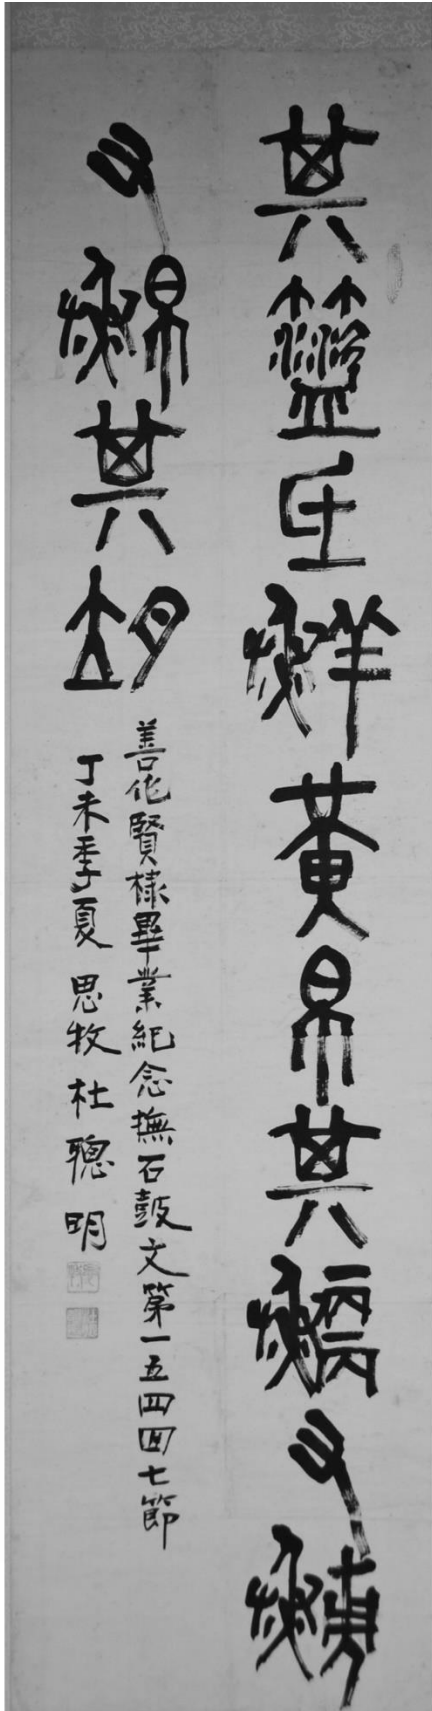 其氐鮮黃帛其又
又其
善化賢棣畢業紀念撫石鼓文第一五四四七節
丁未季夏 思牧 杜聰明